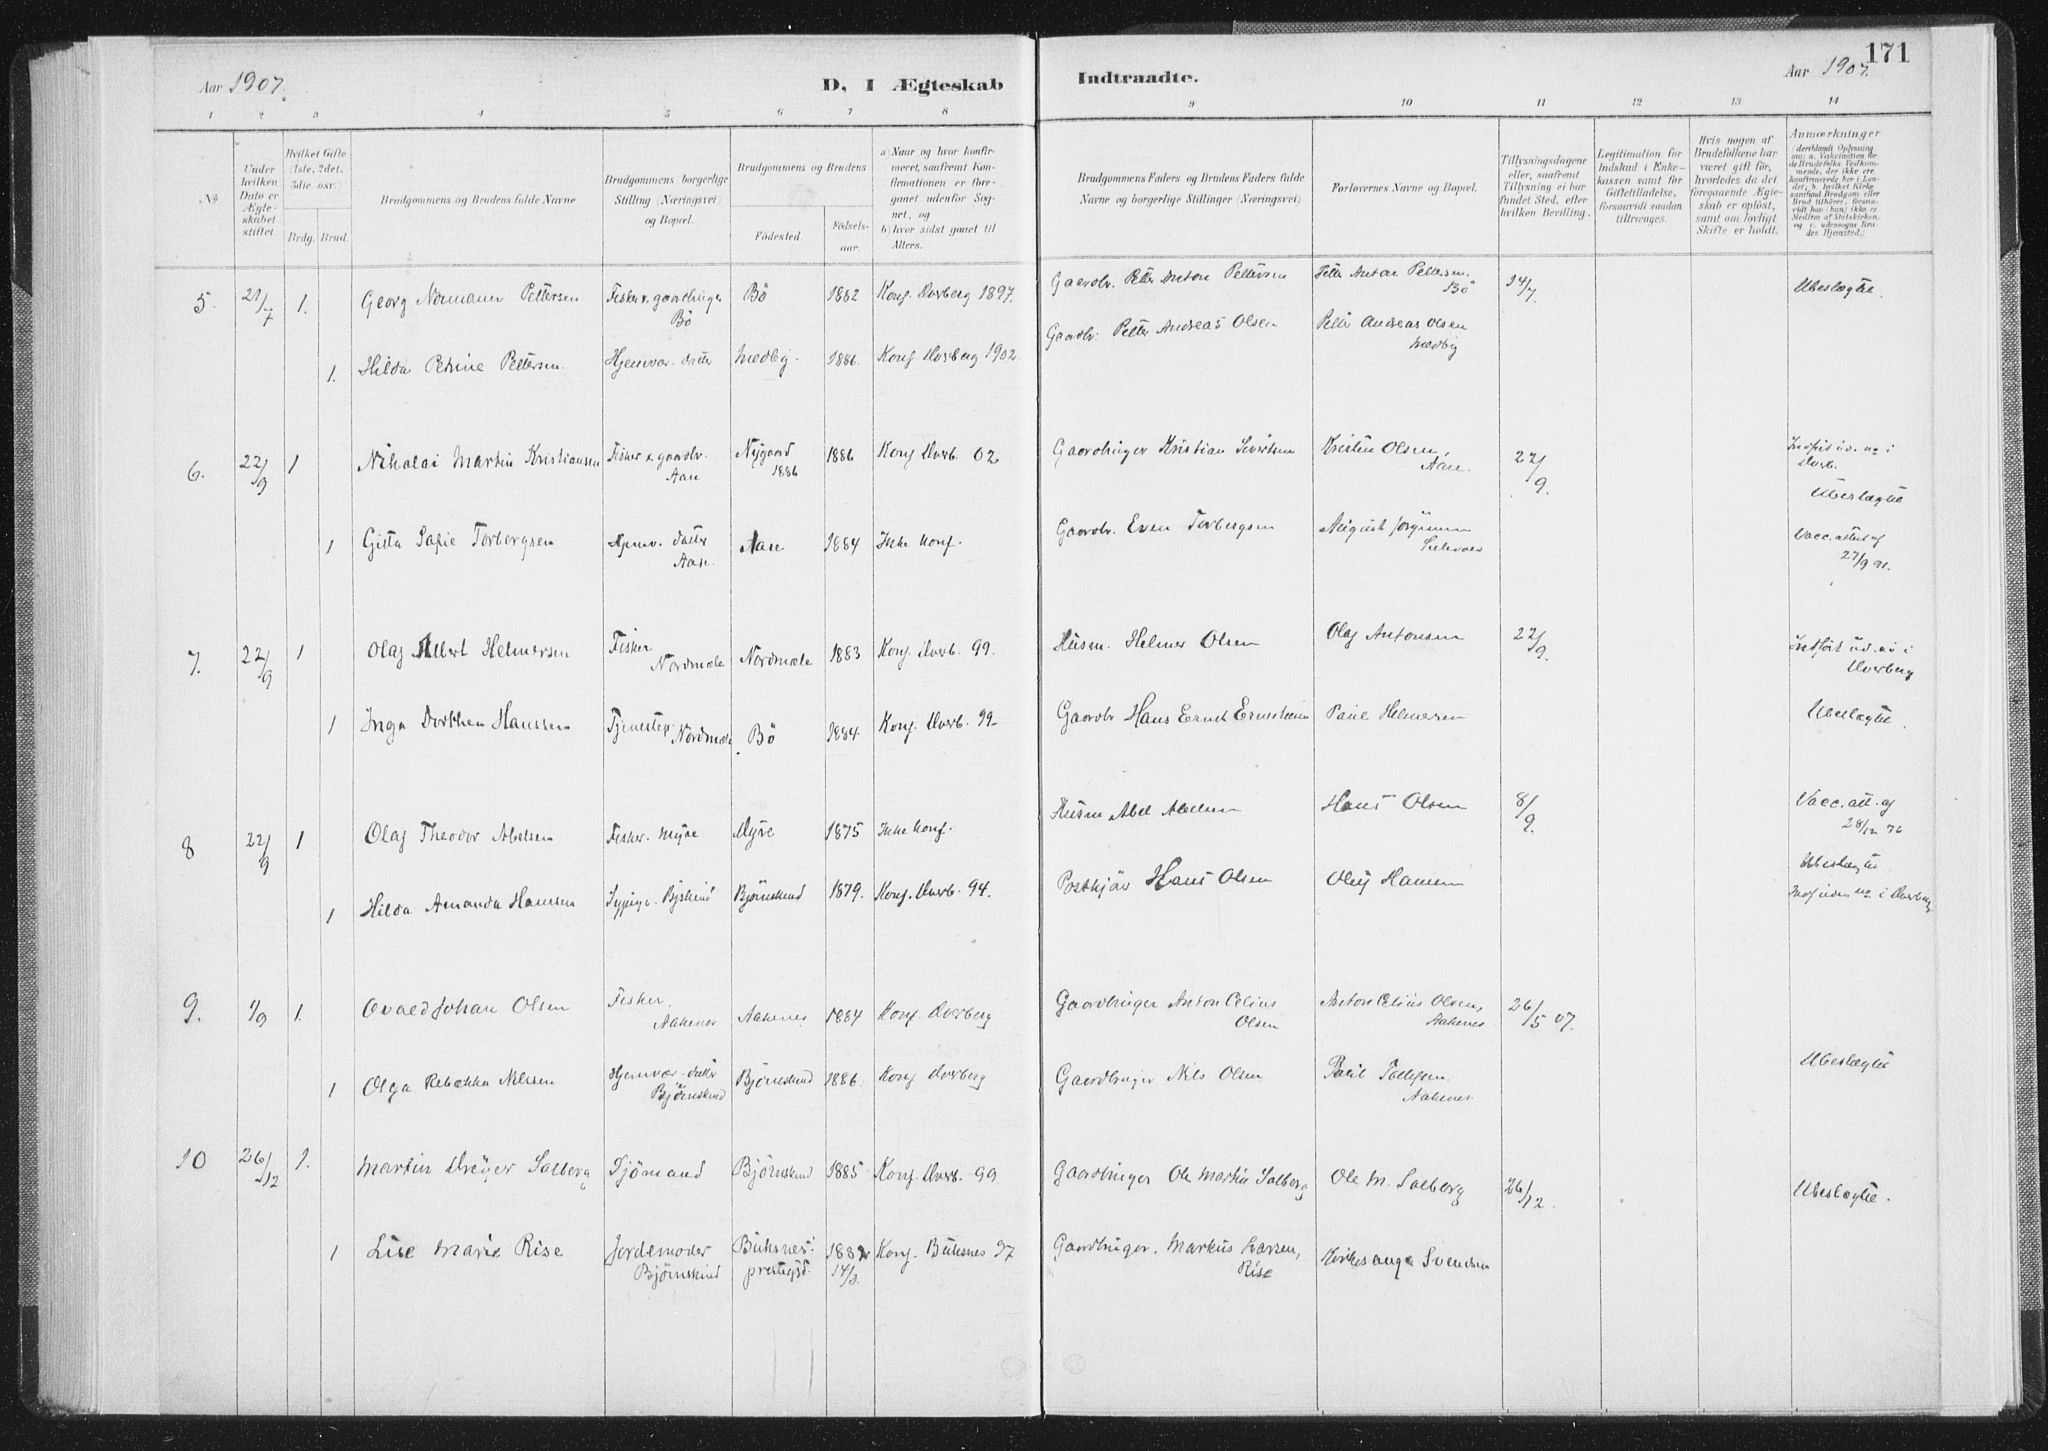 171
Aar 1907.
D. I Ægteskab
Indtraadte.
Aar 1907.
1 2 3 4 5 6 7 8 9 10 11 12 13 14
No.
Under hvilken Dato er Ægteskabet stiftet.
Hvilket Gifte (1ste, 2det, 3die osv.)
Brdg. Brud.
Brudgommens og Brudens fulde Navne
Brudgommens borgerlige Stilling (Næringsvei) og Bopæl.
Brudgommens og Brudens
Fødested.
Fødselsaar.
a) Naar og hvor konfirmeret, saafremt Konfirmationen er foregaaet udenfor Sognet, og
b) hvor sidst gaaet til Alters.
Brudgommens Faders og Brudens Faders fulde Navne og borgerlige Stillinger (Næringsvei)
Forlovernes Navne og Bopæl.
Tillysningsdagene eller, saafremt Tillysning ei har fundet Sted, efter hvilken Bevilling.
Legitimation for Indskud i Enkekassen samt for Giftetilladelse, forsaavidt saadan tiltrænges.
Hvis nogen af Brudefolkene har været gift før, hvorledes da det foregaaende Ægteskab er opløst, samt om lovligt Skifte er holdt.
Anmærkninger (deriblandt Oplysning om: a. Vakcination for de Brudefolks Vedkommende, der ikke ere konfirmerede her i Landet, b. hvilket Kirkesamfund Brudgom eller Brud tilhører, forsaavidt han (hun) ikke er Medlem af Statskirken, og c. udensogns Brudes Hjemsted.)
5. 21/7 1. Georg Normann Pettersen Fisker & gaardbruger Bö Bö 1882 Konf. Dverberg 1897. Gaardbr. Petter Anton Pettersen Petter Anton Pettersen. Bö 14/7 Ubeslægtet.
1. Hilda Petrine Pettersen. Hjemvær. datter Medby. 1886. Konf Dverberg 1902. Gaardbr. Petter Andreas Olsen Petter Andreas Olsen Medby
6. 22/9 1 Nikolai Martin Kristiansen Fisker & gaardbr. Aase Nygaard 1886 1886 Konf Dverb. 02 Gaardbruger Kristian Sivertsen Kristen Olsen, Aase. 22/9. Indført ud. no i Dverb.
Ubeslægtet
1 Gitta Sofie Torbergsen Hjemv. datter Aase. Aase 1884 Ikke konf. Gaardbr. Even Torbergsen August Jörgensen Vacc. attest af 27/9 91.
7. 22/9 1 Olaf Albert Helmersen Fisker Nordmæle Nordmæle 1883 Konf. Dverb. 99. Husm. Helmer Olsen Olaf Antonsen 22/9. Indført ud. no i Dverberg
1 Inga Dorthea Hanssen Tjenestep. Nordmæle Bö 1884. Konf. Dverb. 99- Gaardbr Hans Ernst Ernstsen Paul Helmersen Ubeslægtet.
8 22/9 1 Olaf Theodor Abelsen Fisker. Myre Myre 1875 Ikke konf. Husm Abel Abelsen Hans Olsen 8/9. Vacc. att. af 28/12 76
Ubeslægtet
1 Hilda Amanda Hanssen Sypige. Bjskind Björnskind 1879. Konf. Dverb. 94. Postkjör Hans Olsen Oluf Hansen Indf uden no i Dverberg
9. 1/9 1. Ovald Johan Olsen Fisker, Aakenes Aakenes 1884 Konf. Dverberg Gaardbruger Anton Celius Olsen Anton Celius Olsen, Aakenes 26/5 07.
1 Olga Rebækka Nilssen Hjemvær. datter Björnskind Björnskind 1886. Konf Dverberg Gaardbruger Nils Olsen Paul Tollefsen. Aakenes Ubeslægtet
10 26/12 1. Martin Dreyer Solberg Sjömand Björnskind 1885 Konf. Dverb. 99. Gaardbruger Ole Martin Solberg Ole M. Solberg 26/12. Ubeslægtet.
1 Lise Marie Rise Jordemoder Björnskind Buksnes prestegjd. 1882 14/3. Konf. Buksnes 97 Gaardbruger. Markus Larsen, Rise Kirkesanger Svendsen